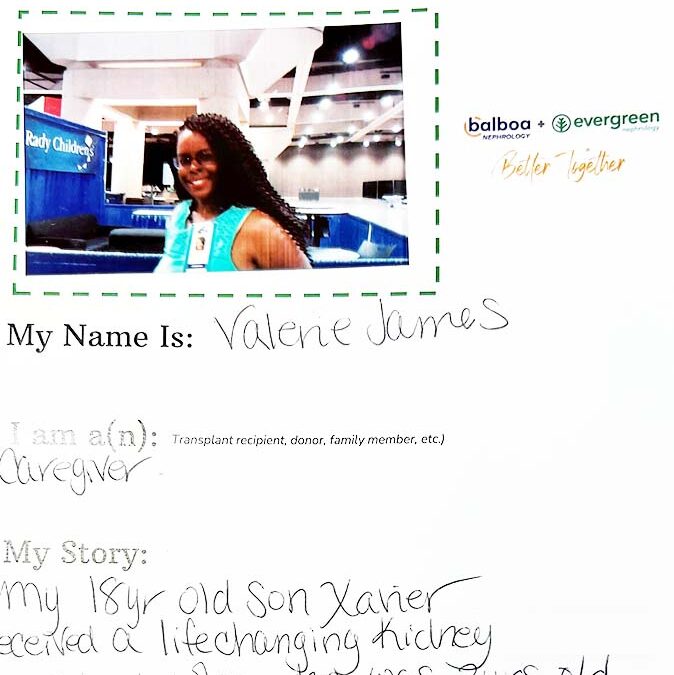 Rady Children's
balboa + evergreen
NEPHROLOGY nephrology
Better Together
My Name Is: Valerie James
I am a(n): Transplant recipient, donor, family member, etc.)
Caregiver
My Story:
My 18yr old son Xavier
eceived a lifechanging Kidney
was old